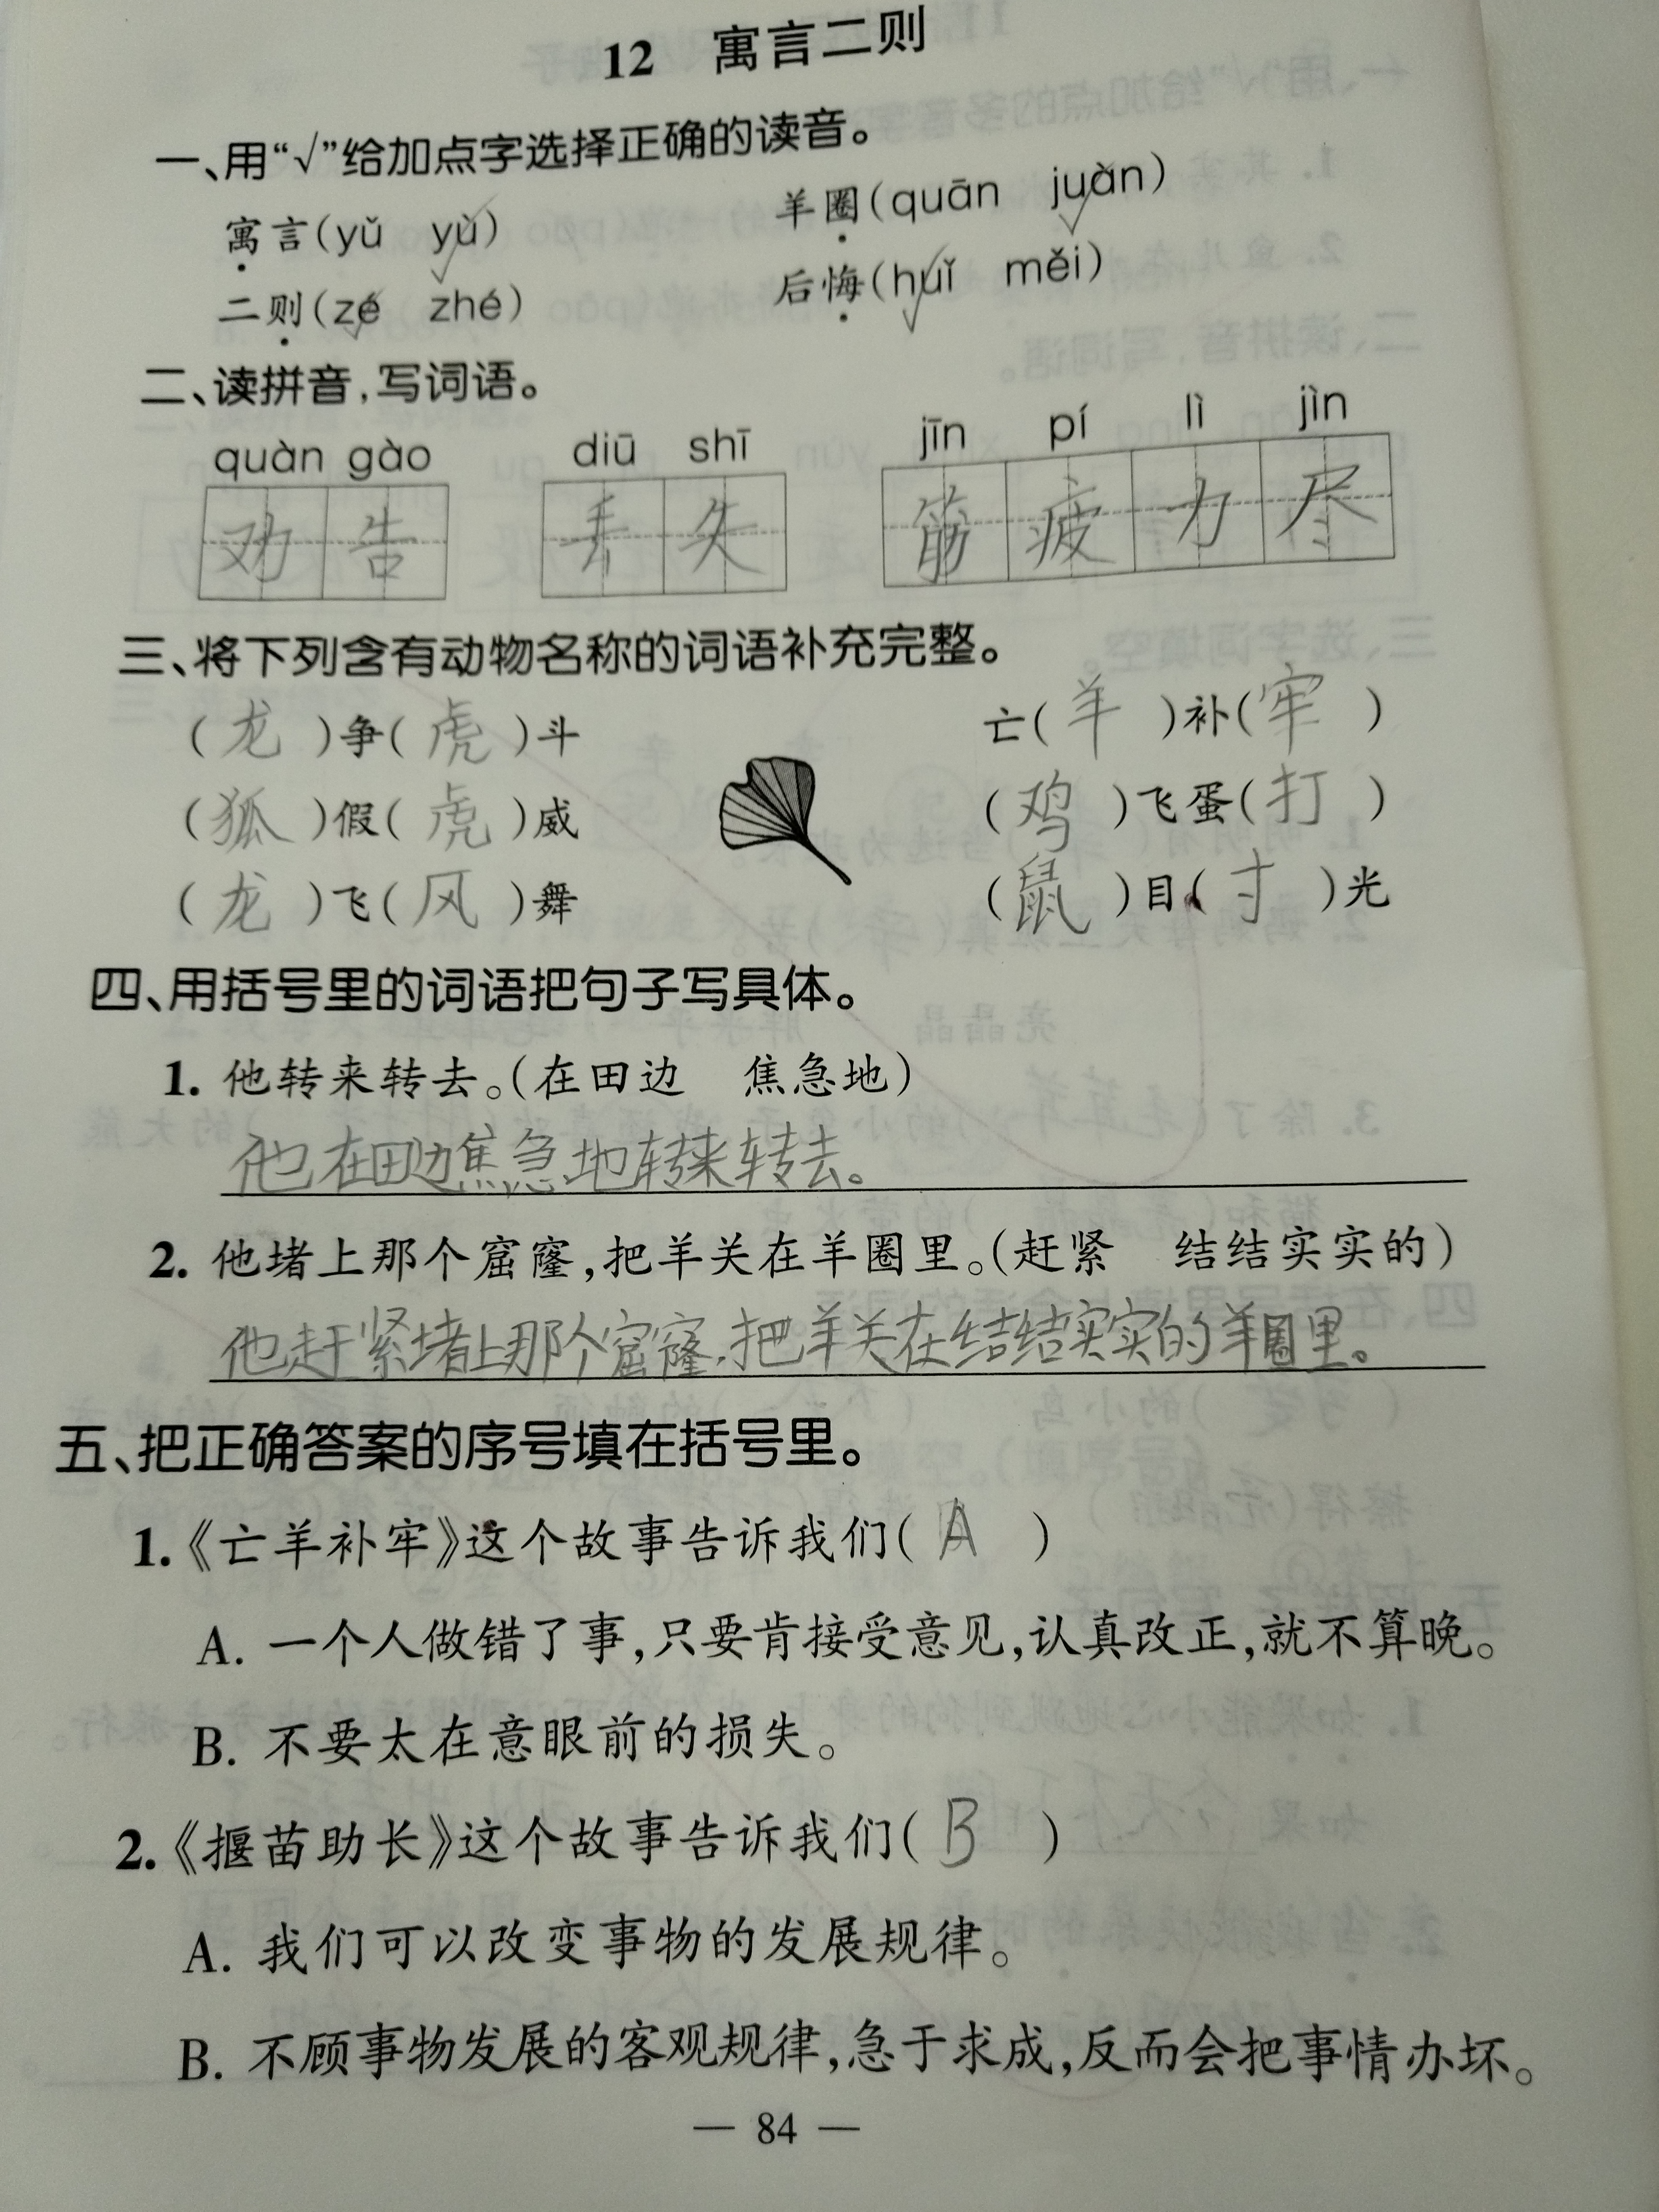 12 寓言二则
一、用“√”给加点字选择正确的读音。
寓言(yǔ yù) 羊圈(quān juàn)
二则(zé zhé) 后悔(huǐ měi)
二、读拼音,写词语。
quàn gào diū shī jīn pí lì jìn
劝告 丢失 筋疲力尽
三、将下列含有动物名称的词语补充完整。
(龙)争(虎)斗 亡(羊)补(牢)
(狐)假(虎)威 (鸡)飞蛋(打)
(龙)飞(风)舞 (鼠)目(寸)光
四、用括号里的词语把句子写具体。
1. 他转来转去。(在田边 焦急地)
他在田边焦急地转来转去。
2. 他堵上那个窟窿,把羊关在羊圈里。(赶紧 结结实实的)
他赶紧堵上那个窟窿,把羊关在结结实实的羊圈里。
五、把正确答案的序号填在括号里。
1.《亡羊补牢》这个故事告诉我们( A )
A. 一个人做错了事,只要肯接受意见,认真改正,就不算晚。
B. 不要太在意眼前的损失。
2.《揠苗助长》这个故事告诉我们( B )
A. 我们可以改变事物的发展规律。
B. 不顾事物发展的客观规律,急于求成,反而会把事情办坏。
— 84 —